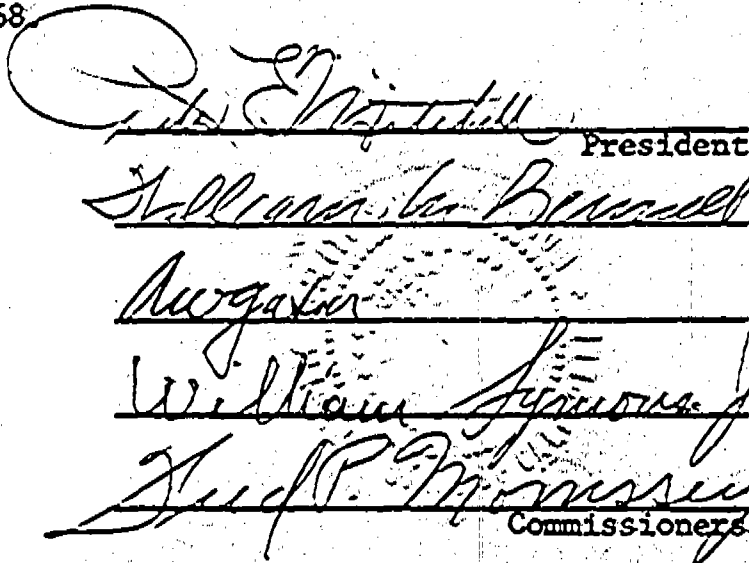 68.
Peter E. Mitchell
President
William M. Bennett
AWGatov
William Symons J
Fred P. Morrissey
Commissioners